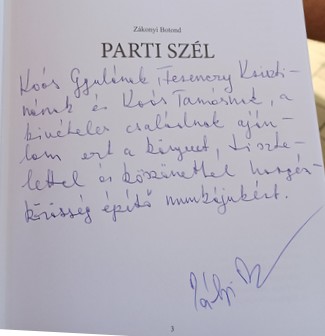 Zákonyi Botond
PARTI SZÉL
Koós Gyulának, Ferenczy Kriszti-
nának és Koós Tamásnak, a
kivételes családnak aján-
lom ezt a könyvet, tiszte-
lettel és köszönettel
közösség építő munkájukért.
3